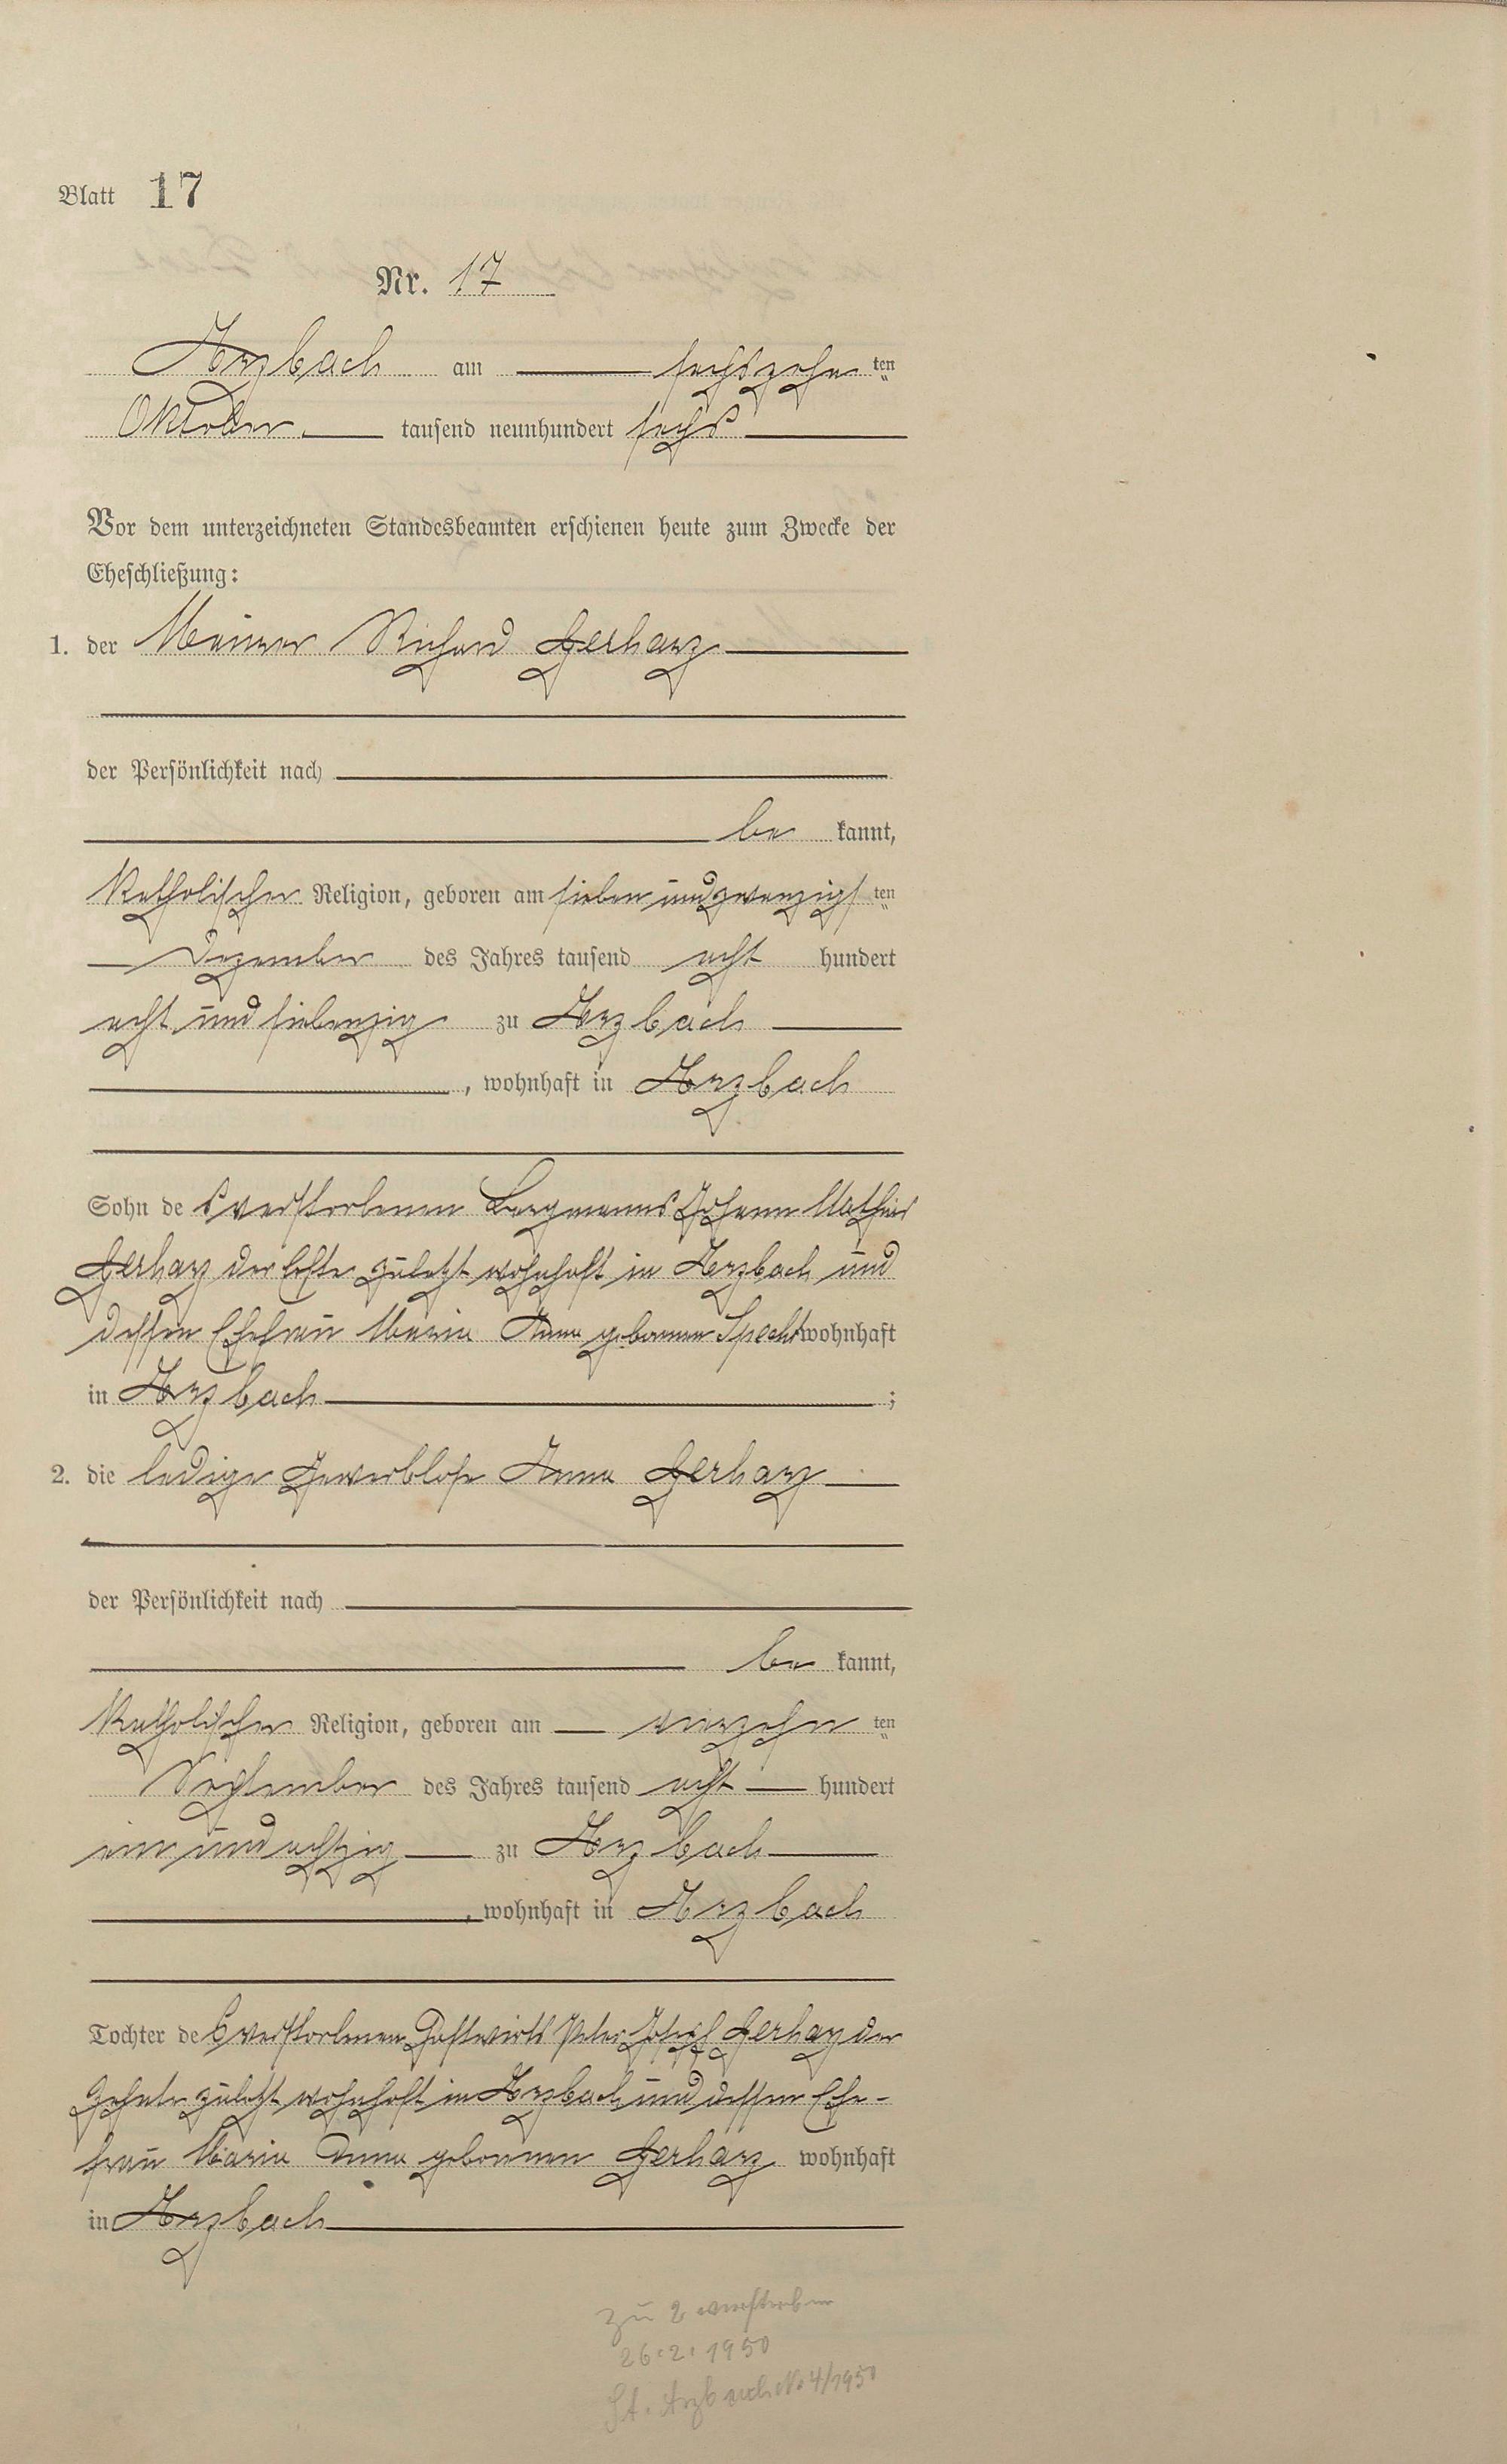 Blatt 17
Nr. 17
Arzbach am sechszehnten
Oktober tausend neunhundert sechs
Vor dem unterzeichneten Standesbeamten erschienen heute zum Zwecke der
Eheschließung:
1. der Maurer Richard Gerharz
der Persönlichkeit nach
be kannt,
katholischer Religion, geboren am sieben und zwanzigsten
Dezember des Jahres tausend acht hundert
acht und siebenzig zu Arzbach
, wohnhaft in Arzbach
Sohn des verstorbenen Bergmanns Johann Mathias
Gerharz der Erste zuletzt wohnhaft in Arzbach und
dessen Ehefrau Maria Anna geborenen Specht wohnhaft
in Arzbach ;
2. die ledige Gewerblose Anna Gerharz
der Persönlichkeit nach
be kannt,
katholischer Religion, geboren am vierzehnten
September des Jahres tausend acht hundert
ein und achtzig zu Arzbach
, wohnhaft in Arzbach
Tochter des verstorbenen Gastwirts Peter Josef Gerharz der
Zehnte zuletzt wohnhaft in Arzbach und dessen Ehe-
frau Maria Anna geborenen Gerharz wohnhaft
in Arzbach
zu 2 verstorben
26.2.1950
St. Arzbach No 4/1950